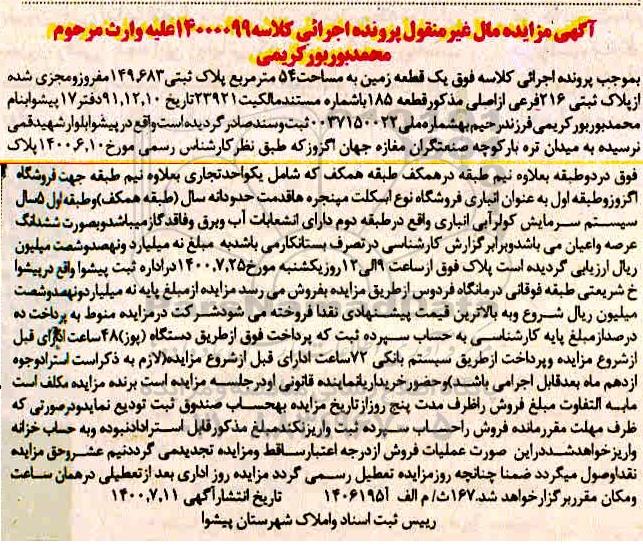 آگهی مزایده مال غیر منقول پرونده اجرائی کلاسه ۱۴۰۰۰۰۰۹۹علیه وارث مرحوم
محمدبوربورکریمی
بموجب پرونده اجرائی کلاسه فوق یک قطعه زمین به مساحت ۵۴ مترمربع پلاک ثبتی ۱۴۹,۶۸۳مفروزومجزی شده
ازپلاک ثبتی ۲۱۶فرعی ازاصلی مذکورقطعه ۱۸۵باشماره مستندمالکیت۲۳۹۲۱تاریخ ۹۱,۱۲,۱۰دفتر۱۷پیشوابنام
محمدبوربورکریمی فرزندرحیم بهشماره ملی۰۰۳۷۱۵۰۰۲۲ثبت وسندصادرگردیده است واقع درپیشوابلوارشهیدقمی
نرسیده به میدان تره بارکوچه صنعتگران مغازه جهان اگزوزکه طبق نظرکارشناس رسمی مورخ۱۴۰۰,۶,۱۰پلاک
فوق دردوطبقه بعلاوه نیم طبقه درهمکف طبقه همکف که شامل یکواحدتجاری بعلاوه نیم طبقه جهت فروشگاه
اگزوزوطبقه اول به عنوان انباری فروشگاه نوع اسکلت میننجره هاقدمت حدودانه سال (طبقه همکف)وطبقه اول ۵سال
سیستم سرمایش کولرآبی انباری واقع درطبقه دوم دارای انشعابات آب وبرق وفاقدگازمیباشدوبصورت ششدانگ
عرصه واعیان می باشدوبرابرگزارش کارشناسی درتصرف بستانکارمی باشدبه مبلغ نه میلیارد ونهصدوشصت میلیون
ریال ارزیابی گردیده است پلاک فوق ازساعت ۹الی۱۲روزیکشنبه مورخ۱۴۰۰,۷,۲۵دراداره ثبت پیشوا واقع درپیشوا
خ شریعتی طبقه فوقانی درمانگاه فردوس ازطریق مزایده بفروش می رسد مزایده ازمبلغ پایه نه میلیاردونهصدوشصت
میلیون ریال شروع وبه بالاترین قیمت پیشنهادی نقدا فروخته می شودشرکت درمزایده منوط به پرداخت ده
درصدازمبلغ پایه کارشناسی به حساب سپرده ثبت که پرداخت فوق ازطریق دستگاه (پوز)۴۸ساعت ادارای قبل
ازشروع مزایده وپرداخت ازطریق سیستم بانکی ۷۲ساعت ادارای قبل ازشروع مزایده(لازم به ذکراست استرادوجوه
ازدهم ماه بعدقابل اجرامی باشد)وحضورخریداریانماینده قانونی اودرجلسه مزایده است برنده مزایده مکلف است
مابه التفاوت مبلغ فروش راظرف مدت پنج روزازتاریخ مزایده بهحساب صندوق ثبت تودیع نمایدودرصورتی که
ظرف مهلت مقررمانده فروش راحساب سپرده ثبت واریزنکندمبلغ مذکورقابل استرادادنبوده وبه حساب خزانه
واریزخواهدشددراین صورت عملیات فروش ازدرجه اعتبارساقط ومزایده تجدیدمی گرددنیم عشروحق مزایده
نقداوصول میگردد ضمنا چنانچه روزمزایده تعطیل رسمی گردد مزایده روز اداری بعد ازتعطیلی درهمان ساعت
ومکان مقرربرگزارخواهد شد.۱۶۷ث/ م الف آ۱۴۰۶۱۹۵ تاریخ انتشارآگهی ۱۴۰۰,۷,۱۱
رییس ثبت اسناد واملاک شهرستان پیشوا